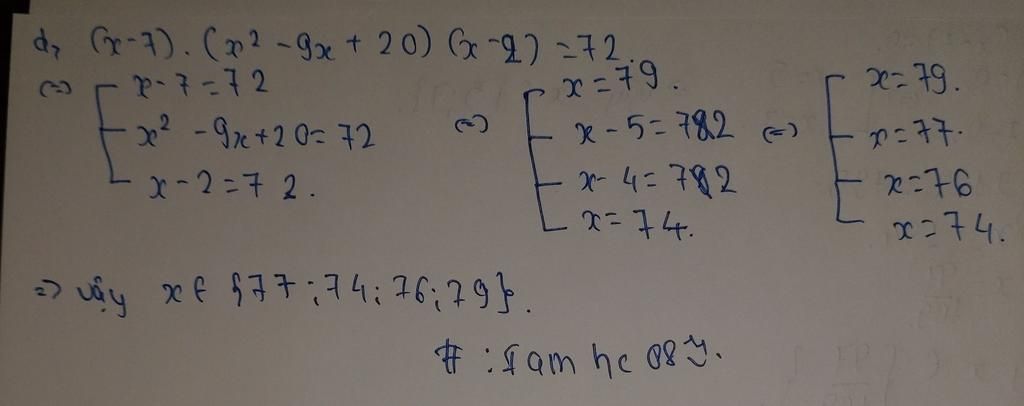 d, (x-7).(x² -9x+20)(x-2)=72.
(=) x-7=72
x² -9x+20=72
x-2=72.
(=) x=79.
x-5=72
x-4=72
x=74.
(=) x=79.
x=77.
x=76
x=74.
=> vậy x ∈ {77;74;76;79}.
# :